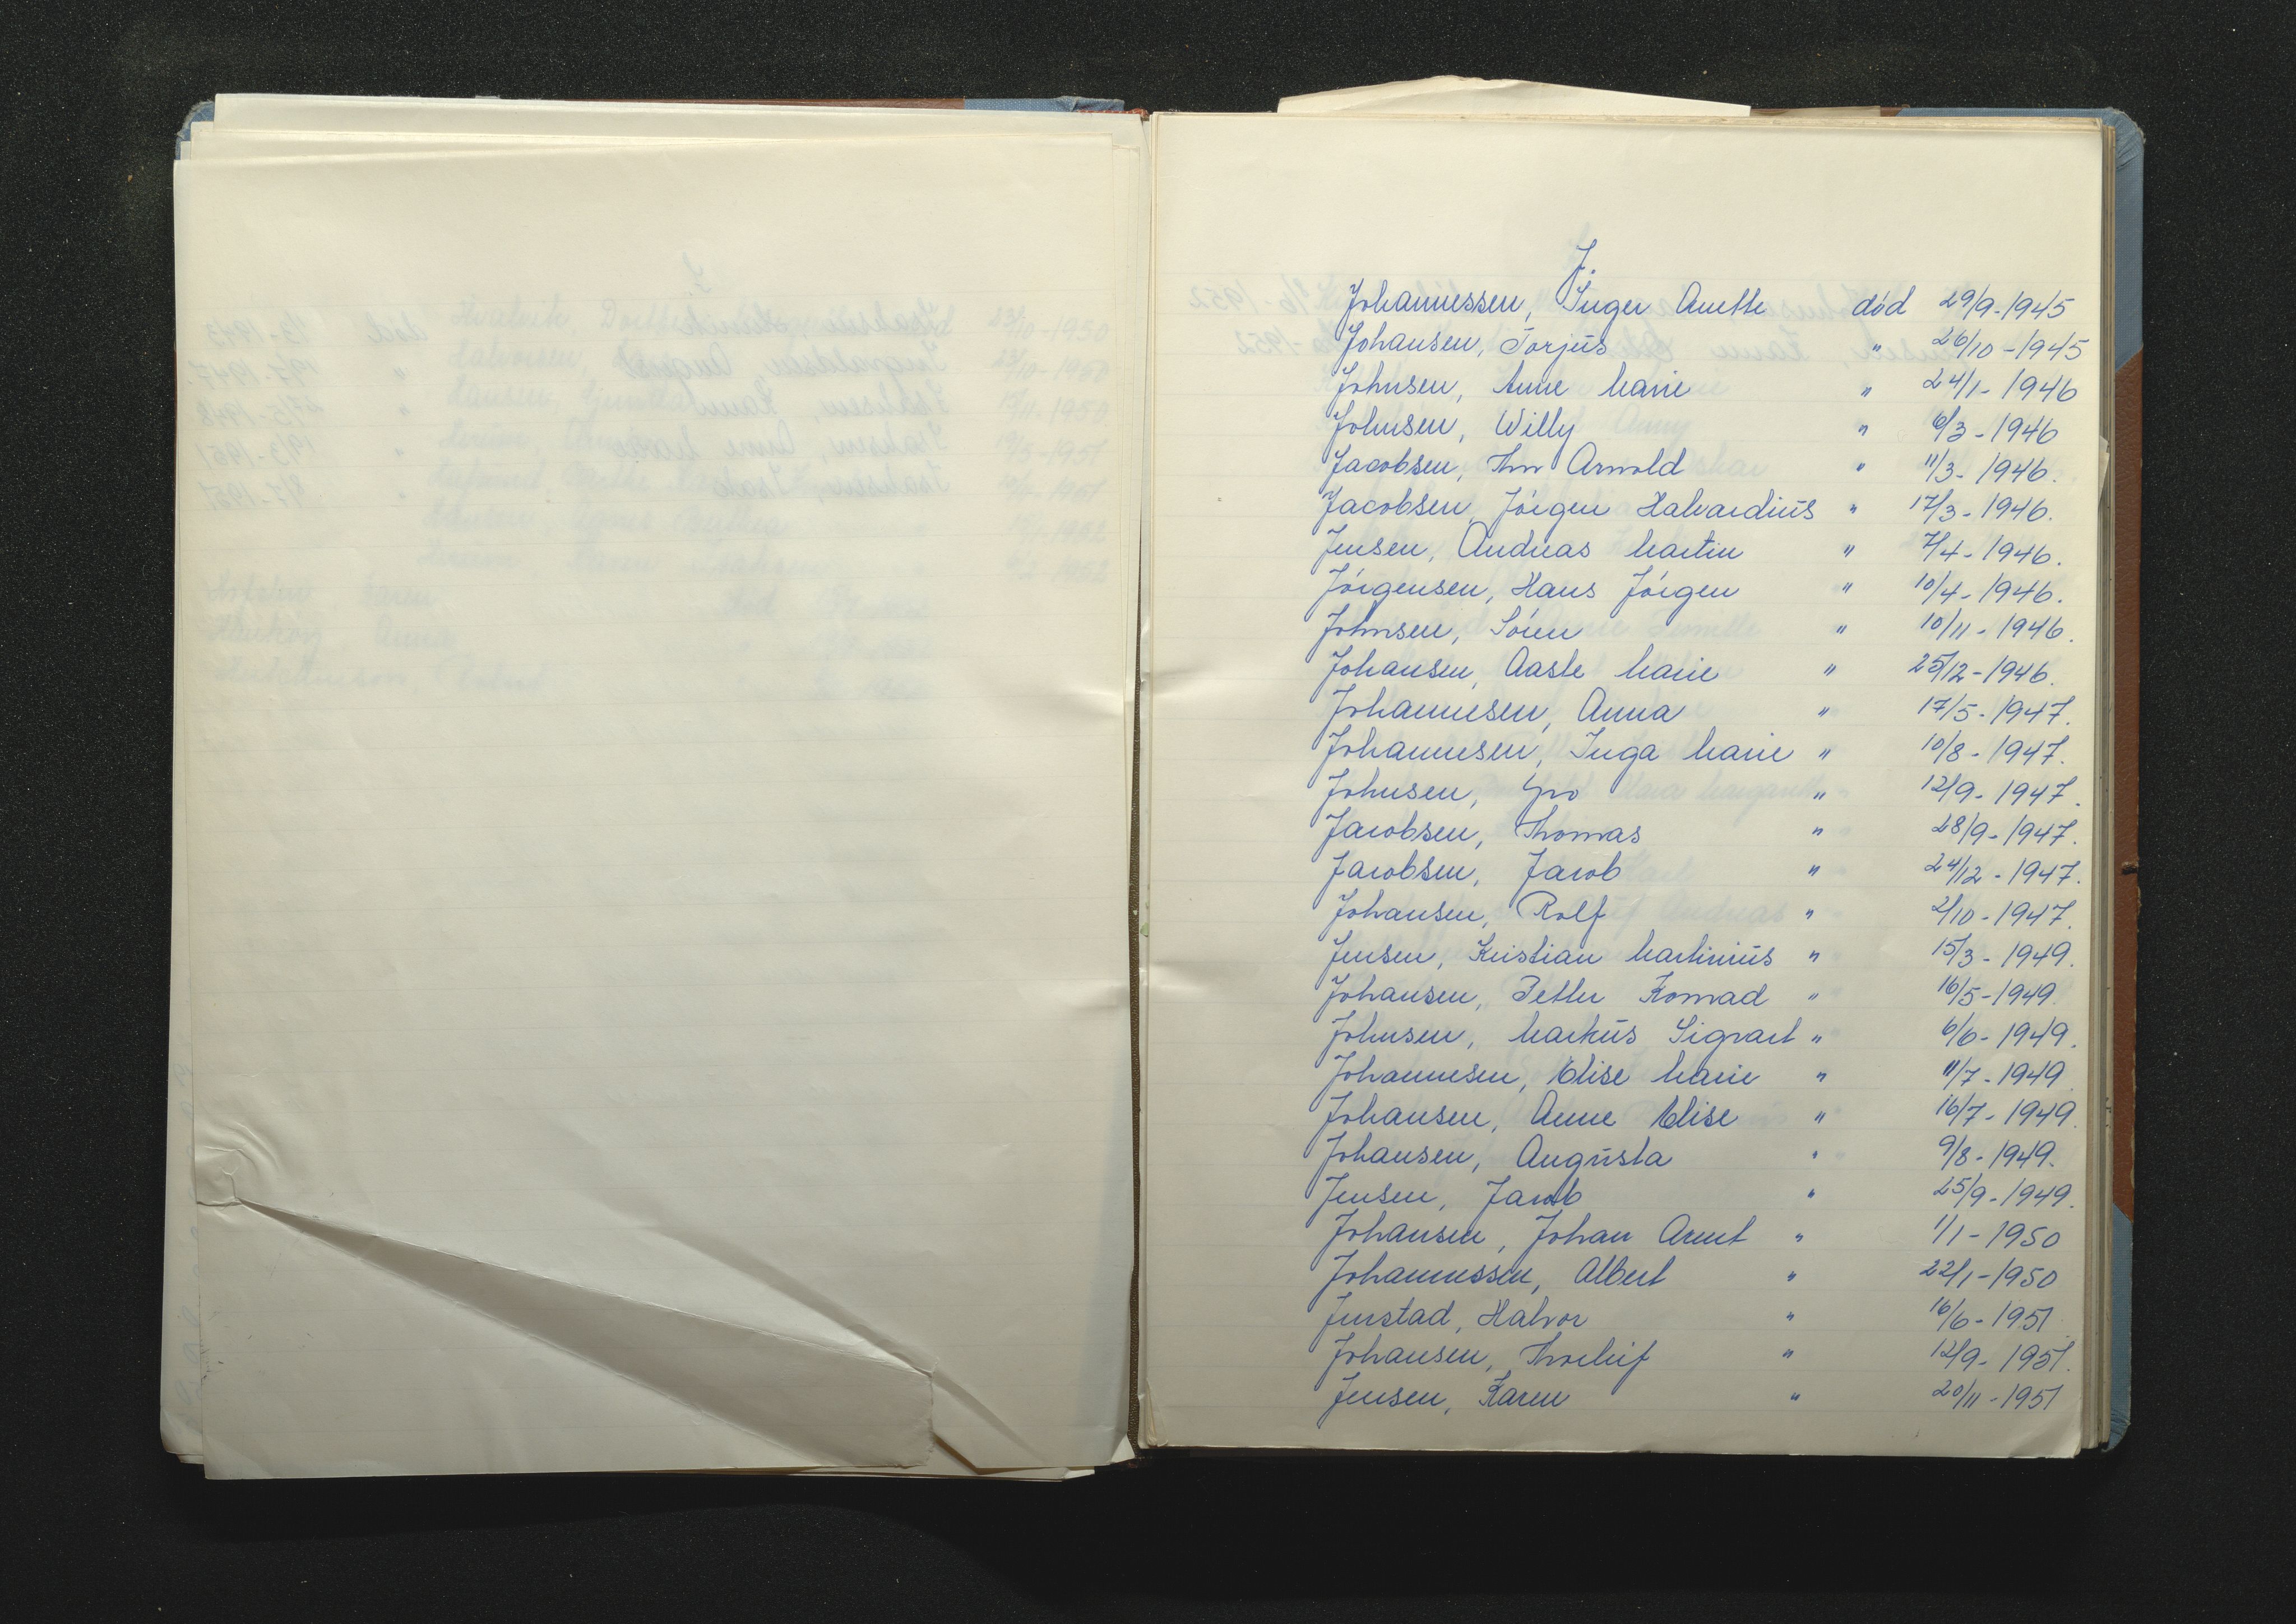 J.
Johannessen, Inger Anette død 29/9-1945
Johansen, Torjus " 26/10-1945
Johnsen, Anne Marie " 24/1-1946
Johnsen, Willy " 6/3-1946
Jacobsen, Thv Arnold " 11/3-1946.
Jacobsen, Jörgen Halvardius " 17/3-1946.
Jensen, Andreas Martin " 7/4-1946.
Jörgensen, Hans Jörgen " 10/4-1946.
Johnsen, Sören " 10/11-1946.
Johansen, Aaste Marie " 25/12-1946.
Johannesen, Anna " 17/5-1947.
Johannesen, Inga Marie " 10/8-1947.
Johnsen, Gro " 12/9-1947.
Jacobsen, Thomas " 28/9-1947.
Jacobsen, Jacob " 24/12-1947.
Johansen, Rolf " 2/10-1947.
Jensen, Kristian Martinius " 15/3-1949.
Johansen, Petter Konrad " 16/5-1949
Johnsen, Markus Sigvart " 6/6-1949.
Johannesen, Elise Marie " 11/7-1949
Johansen, Anne Elise " 16/7-1949.
Johansen, Augusta " 9/8-1949.
Jensen, Jacob " 25/9-1949.
Johansen, Johan Arent " 1/1-1950
Johannessen, Albert " 22/1-1950
Jerstad, Halvor " 16/6-1951
Johansen, Thorleif " 12/9-1951.
Jensen, Karen " 20/11-1951